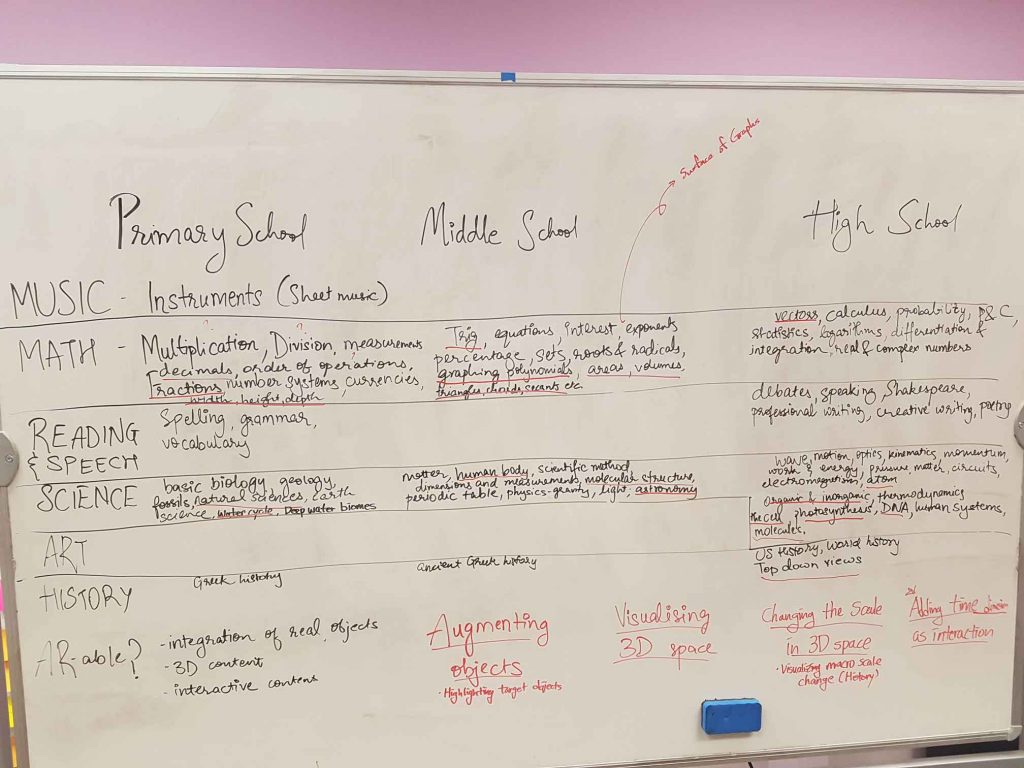 Surface of Graphs
Primary School
Middle School
High School
MUSIC - Instruments (Sheet music)
MATH - Multiplication, Division, measurements
decimals, order of operations,
fractions number systems, currencies,
width, height, depth
Trig, equations, interest, exponents
percentage, sets, roots & radicals,
graphing polynomials, areas, volumes,
triangles, chords, secants etc.
vectors calculus, probability, P & C,
statistics, logarithms, differentiation &
integration, real & complex numbers
READING
& SPEECH
Spelling, grammar,
vocabulary
debates, speaking, Shakespeare,
professional writing, creative writing, poetry
SCIENCE
basic biology, geology,
fossils, natural sciences, earth
science, water cycle, Deep water biomes
matter, human body, scientific method
dimensions and measurements, molecular structure,
periodic table, physics-gravity, light, astronomy
wave, motion, optics, kinematics, momentum,
work & energy, pressure, matter, circuits,
electromagnetism, atom
organic & inorganic, thermodynamics
the cell, photosynthesis, DNA, human systems,
molecules.
ART
HISTORY
Greek history
ancient Greek history
US History, World history
Top down views
AR-able?
- integration of real objects
- 3D content
- interactive content
Augmenting
objects
• Highlighting target objects
Visualising
3D space
Changing the Scale
in 3D space
• Visualizing macro scale
change (History)
Adding time
as interaction